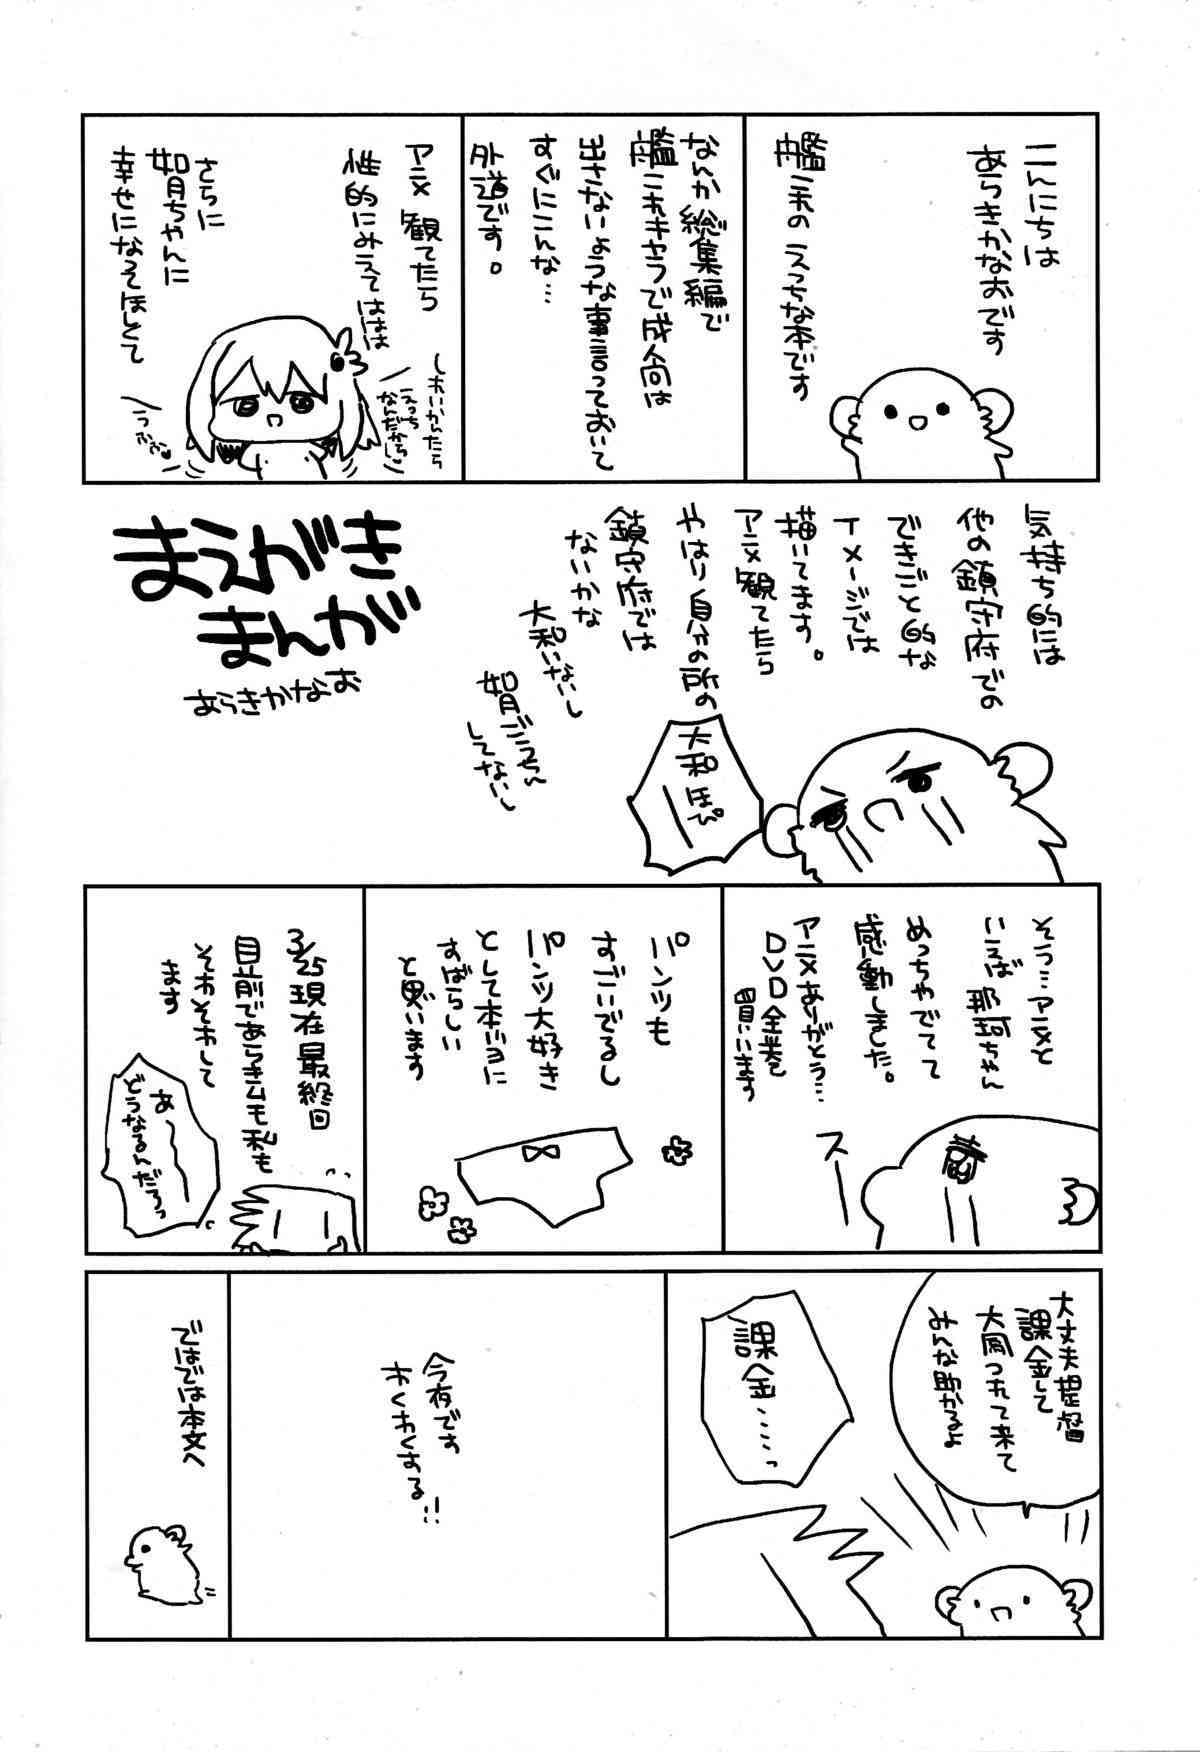 こんにちは
あらきかなおです
艦これの えっちな本です
なんか総集編で
艦これキャラで成人向は
出さないような事言っておいて
すぐにこんな…
外道です。
アニメ 観てたら
性的にみえてははは
さらに
如月ちゃんに
幸せになってほしくて
なんだから♡
うふふ♥
まえがき
まんが
あらきかなお
気持ち的には
他の鎮守府での
できごと的な
イメージでは
描いてます。
アニメ観てたら
やはり自分の所の
鎮守府では
ないかな
大和いないし
如月ごうちん
してないし
大和ほぴ
そう…アニメと
いえば 那珂ちゃん
めっちゃでてて
感動しました。
アニメありがとう…
DVD全巻を
買います
スー
パンツも
すごいでるし
パンツ大好き
として本当に
すばらしい
と思います
3/25現在 最終回
目前であらきムも私も
そわそわして
ます
あ〜
どうなるんだろっ
大丈夫提督
課金して
大鳳つれて来て
みんな助かるよ
課金……っ
今夜です
わくわくする!!
ではでは本文へ